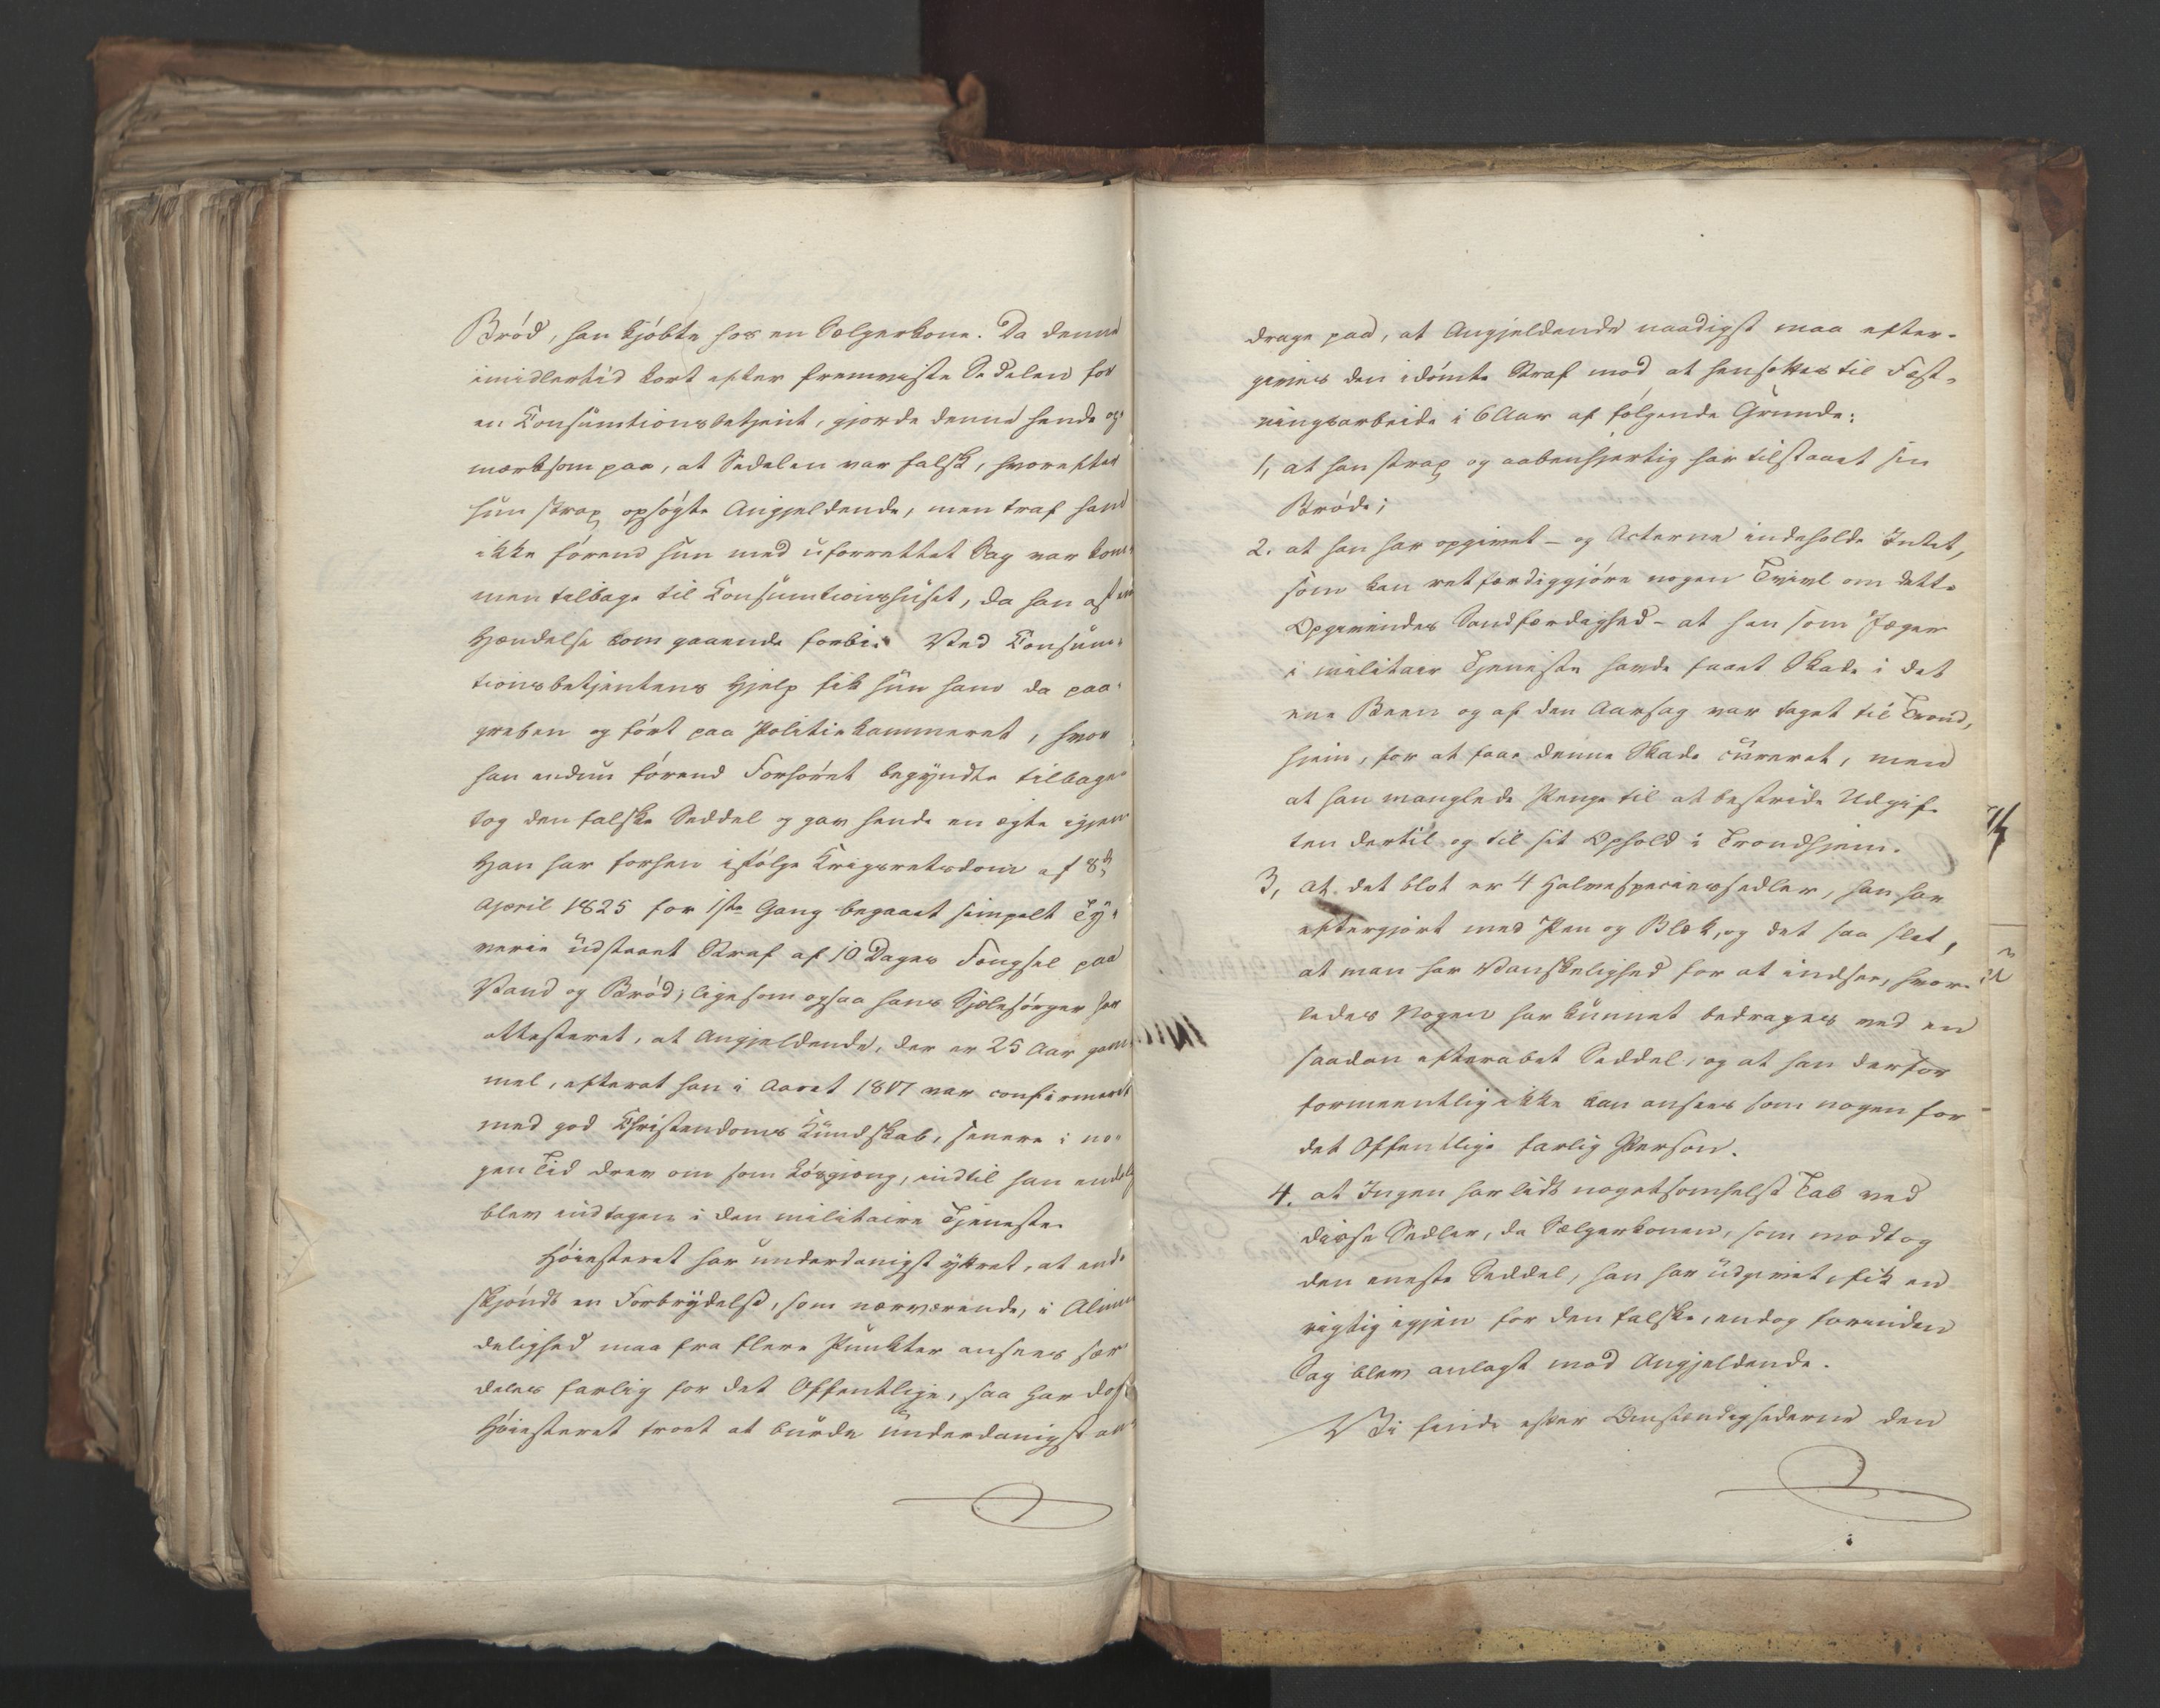 Bród, han kjóbte hos en Sælgerkone. Da denne
imidlertid kort efter fremviste Sedelen for
en Consumtionsbetjent, gjorde denne hende op¬
mærksom paa, at Sedelen var falsk, hvorefter
hun strax opsógte Angjeldende, men traf ham
ikke fórend hun med uforrettet Sag var kom¬
men tilbage til Consumtionshuset, da han af en
Hændelse kom gaaende forbi. Ved Consum¬
tionsbetjentens Hjelp fik hun ham da paa¬
greben og fórt paa Politiekammeret, hvor
han endnu fórend Forhóret begyndte tilbage¬
tog den falske Seddel og gav hende en ægte igjen
Han har forhen ifólge Krigsretsdom af 8de
April 1825 for 1ste Gang begaaet simpelt Ty¬
verie udstaaet Straf af 10 Dages Fængsel paa
Vand og Bród; ligesom ogsaa hans Sjelesórger har
attesteret, at Angjeldende, der er 25 Aar gam¬
mel, efterat han i Aaret 1817 var confirmeret
med god Christendoms Kundskab, senere i no¬
gen Tid drev om som Lósgjæng, indtil han endelig
blev indtagen i den militaire Tjeneste.
Hóiesteret har underdanigst yttret, at end¬
skjóndt en Forbrydelse, som nærværende, i Almin
delighed maa fra flere Punkter ansees sær
deles farlig for det Offentlige, saa har dog
Hóiesteret troet at burde underdanigst an¬
drage paa, at Angjeldende naadigst maa efter¬
gives den idómte Straf mod at hensættes til Fæst¬
ningsarbeide i 6 Aar af fólgende Grunde:
1, at han strax og aabenhjertig har tilstaaet sin
Bróde;
2. at han har opgivet – og Acterne indeholde Intet,
som kan retfærdiggjóre nogen Tvivl om dette
Opgivendes Sandfærdighed – at han som Jæger
i militair Tjeneste havde faaet Skade i det
ene Been og af den Aarsag var taget til Trond¬
hjem, for at faae denne Skade cureret, men
at han manglede Penge til at bestride Udgif¬
ten dertil og til sit Ophold i Trondhjem.
3, at det blot er 4 Halvespeciessedler, han har
eftergjort med Pen og Blæk, og det saa slet,
at man har Vanskelighed for at indsee, hvor¬
ledes Nogen har kunnet bedrages ved en
saadan efterabet Seddel, og at han derfor
formeentlig ikke kan ansees som nogen for
det Offentlige farlig Person.
4. at Ingen har lidt nogetsomhelst Tab ved
disse Sedler, da Sælgerkonen, som modtog
den eneste Seddel, han har udgivet, fik en
rigtig igjen for den falske, endog forinden
Sag blev anlagt mod Angjeldende.
Vi finde efter Omstændighederne den